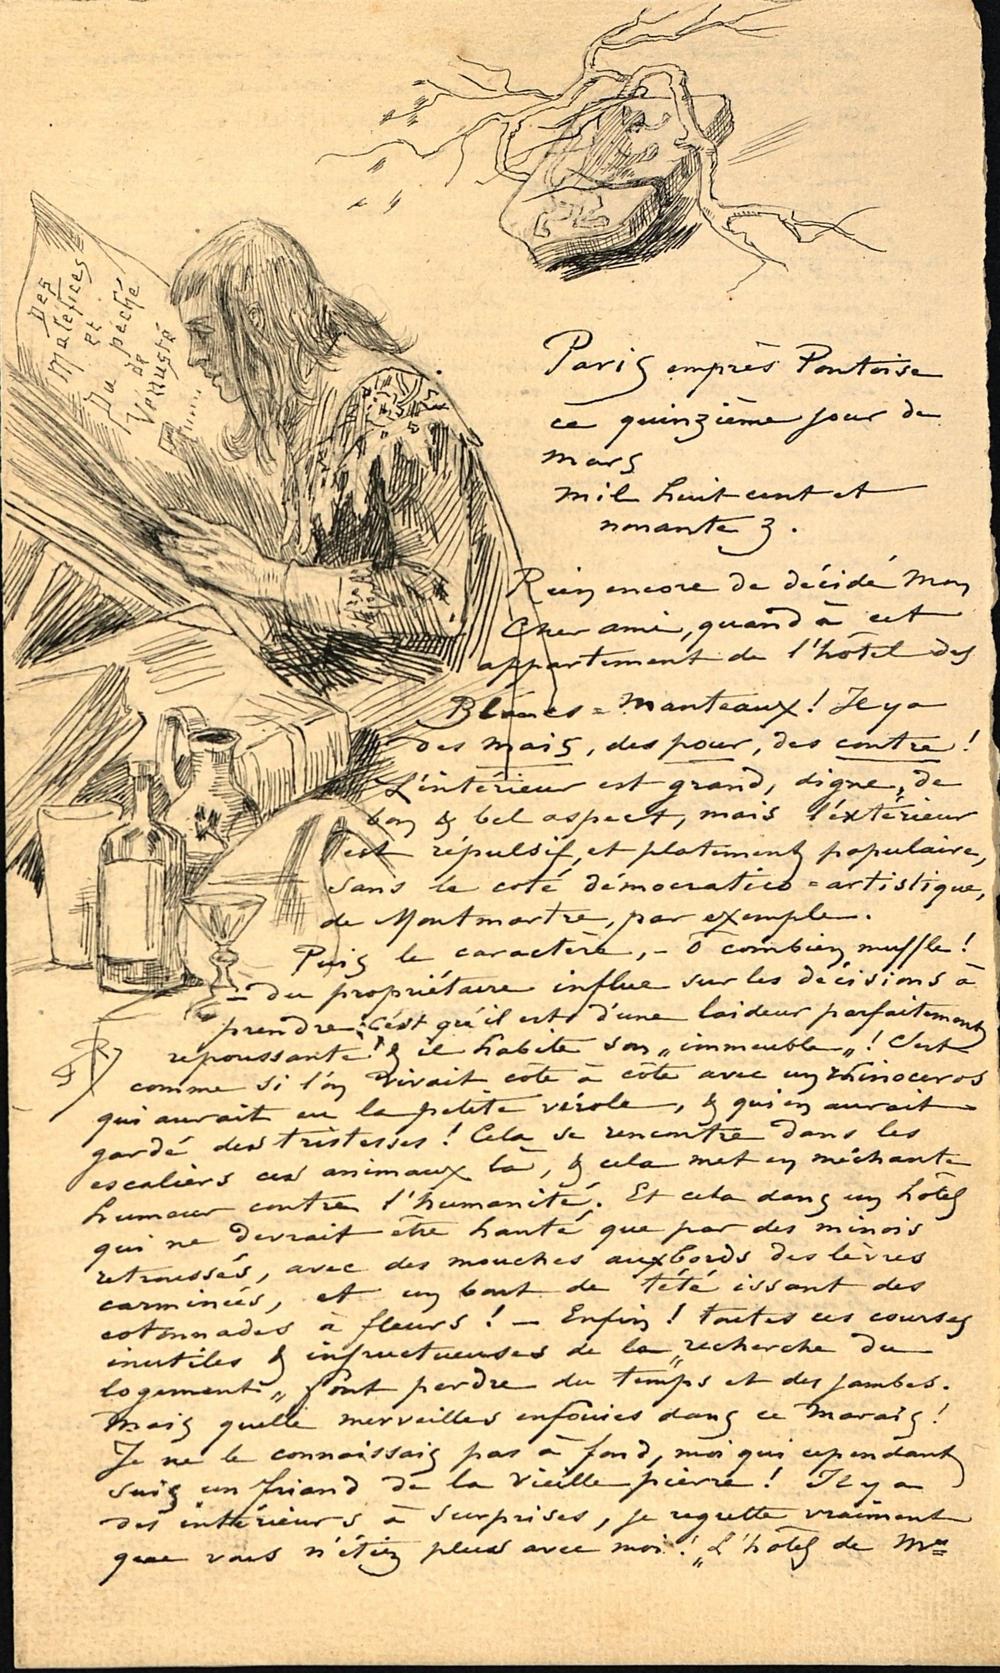 Des
Maléfices
et
Du péché
de
Vénusté
Paris emprès Pontoise
ce quinzième jour de
mars
mil huit cent et
nonante 3.
Rien encore de décidé Mon
Cher ami, quand à cet
appartement de l'hôtel des
Blancs=Manteaux! Il y a
des mais, des pour, des contre!
L'intérieur est grand, digne, de
bon & bel aspect, mais l'éxtérieur
est répulsif, et platement populaire,
sans le coté démocratico=artistique,
de Montmartre, par exemple.
Puis le caractère, - Ô combien muffle!
- du propriétaire influe sur les décisions à
prendre: C'ést qu'il est d'une laideur parfaitement
repoussante! & il habite son „immeuble„! C'est
comme si l'on vivait côte à côte avec un rhinoceros
qui aurait eu la petite vérole, & qui en aurait
gardé des tristesses! Cela se rencontre dans les
escaliers ces animaux là, & cela met en méchante
humeur contre l'humanité. Et cela dans un hôtel
qui ne devrait être hanté que par des minois
retroussés, avec des mouches aux bords des lèvres
carminées, et un bout de tété issant des
cotonnades à fleurs! - Enfin! toutes ces courses
inutiles & infructueuses de la „recherche du
logement„ font perdre du temps et des jambes.
Mais quelle merveilles enfouies dans ce Marais!
Je ne le connaissais pas à fond, moi qui cependant
suis un friand de la vieille pierre! Il y a
des intérieurs à surprises, je regrette vraiment
que vous n'étiez plus avec moi! „L'hôtel de Mme